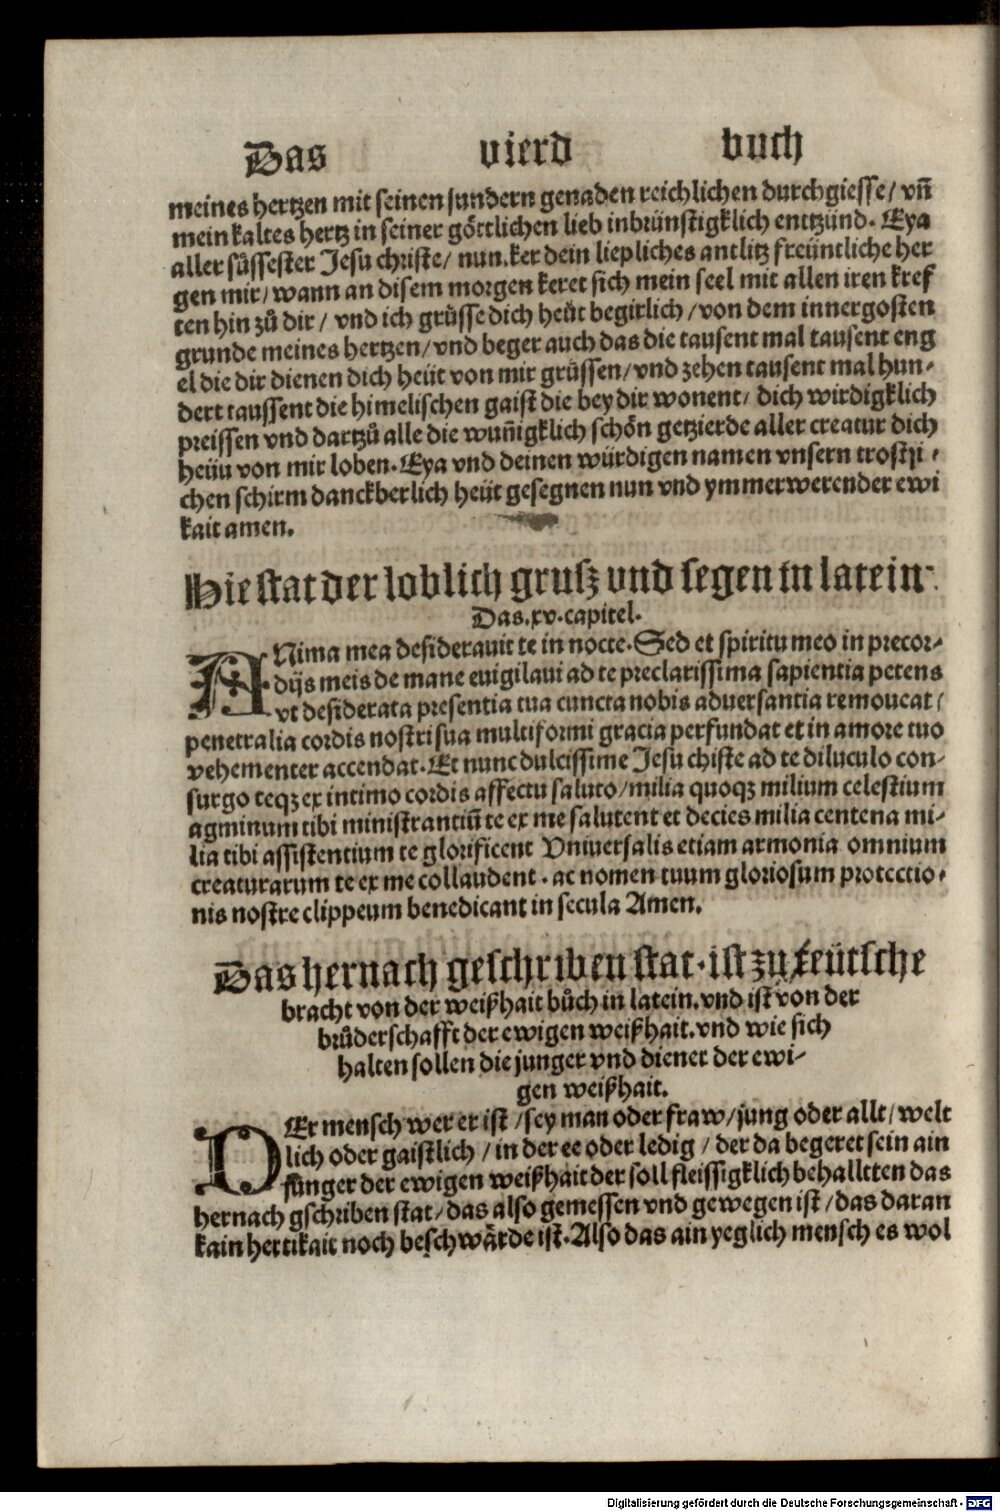 Das vierd buch
meines hertzen mit seinen sundern genaden reichlichen durchgiesse / vn̄
mein kaltes hertz in seiner göttlichen lieb inbrünstigklich enttzünd. Eya
aller süssester Jesu christe / nun.ker dein liepliches antlitz freüntliche her
gen mir / wann an disem morgen keret sich mein seel mit allen iren kref
ten hin zů dir / vnd ich grüsse dich heüt begirlich / von dem innergosten
grunde meines hertzen / vnd beger auch das die tausent mal tausent eng
el die dir dienen dich heüt von mir grüssen / vnd zehen tausent mal hun⸗
dert taussent die himelischen gaist die bey dir wonent / dich wirdigklich
preissen vnd dartzů alle die wun̄igklich schön getzierde aller creatur dich
heüu von mir loben. Eya vnd deinen würdigen namen vnsern trostzi⸗
chen schirm danckberlich heüt gesegnen nun vnd ymmerwerender ewi
kait amen.
Hie stat der loblich grusz vnd segen in latein.
Das.xv.capitel.
ANima mea desiderauit te in nocte. Sed et spiritu meo in precor⸗
dijs meis de mane euigilaui ad te preclarissima sapientia petens
vt desiderata presentia tua cuncta nobis aduersantia remoueat /
penetralia cordis nostri sua multiformi gracia perfundat et in amore tuo
vehementer accendat. Et nunc dulcissime Jesu chiste ad te diluculo con⸗
surgo teqz ex intimo cordis affectu saluto / milia quoqz milium celestium
agminum tibi ministrantiū te ex me salutent et decies milia centena mi⸗
lia tibi assistentium te glorificent Vniuersalis etiam armonia omnium
creaturarum te ex me collaudent. ac nomen tuum gloriosum protectio⸗
nis nostre clippeum benedicant in secula Amen.
Das hernach geschriben stat. ist zu teütsche
bracht von der weißhait bůch in latein. vnd ist von der
brůderschafft der ewigen weißhait. vnd wie sich
halten sollen die junger vnd diener der ewi⸗
gen weißhait.
DEr mensch wer er ist / sey man oder fraw / jung oder allt / welt
lich oder gaistlich / in der ee oder ledig / der da begeret sein ain
jünger der ewigen weißhait der soll fleissigklich behalltten das
hernach gschriben stat / das also gemessen vnd gewegen ist / das daran
kain hertikait noch beschwärde ist. Also das ain yeglich mensch es wol
Digitalisierung gefördert durch die Deutsche Forschungsgemeinschaft - DFG